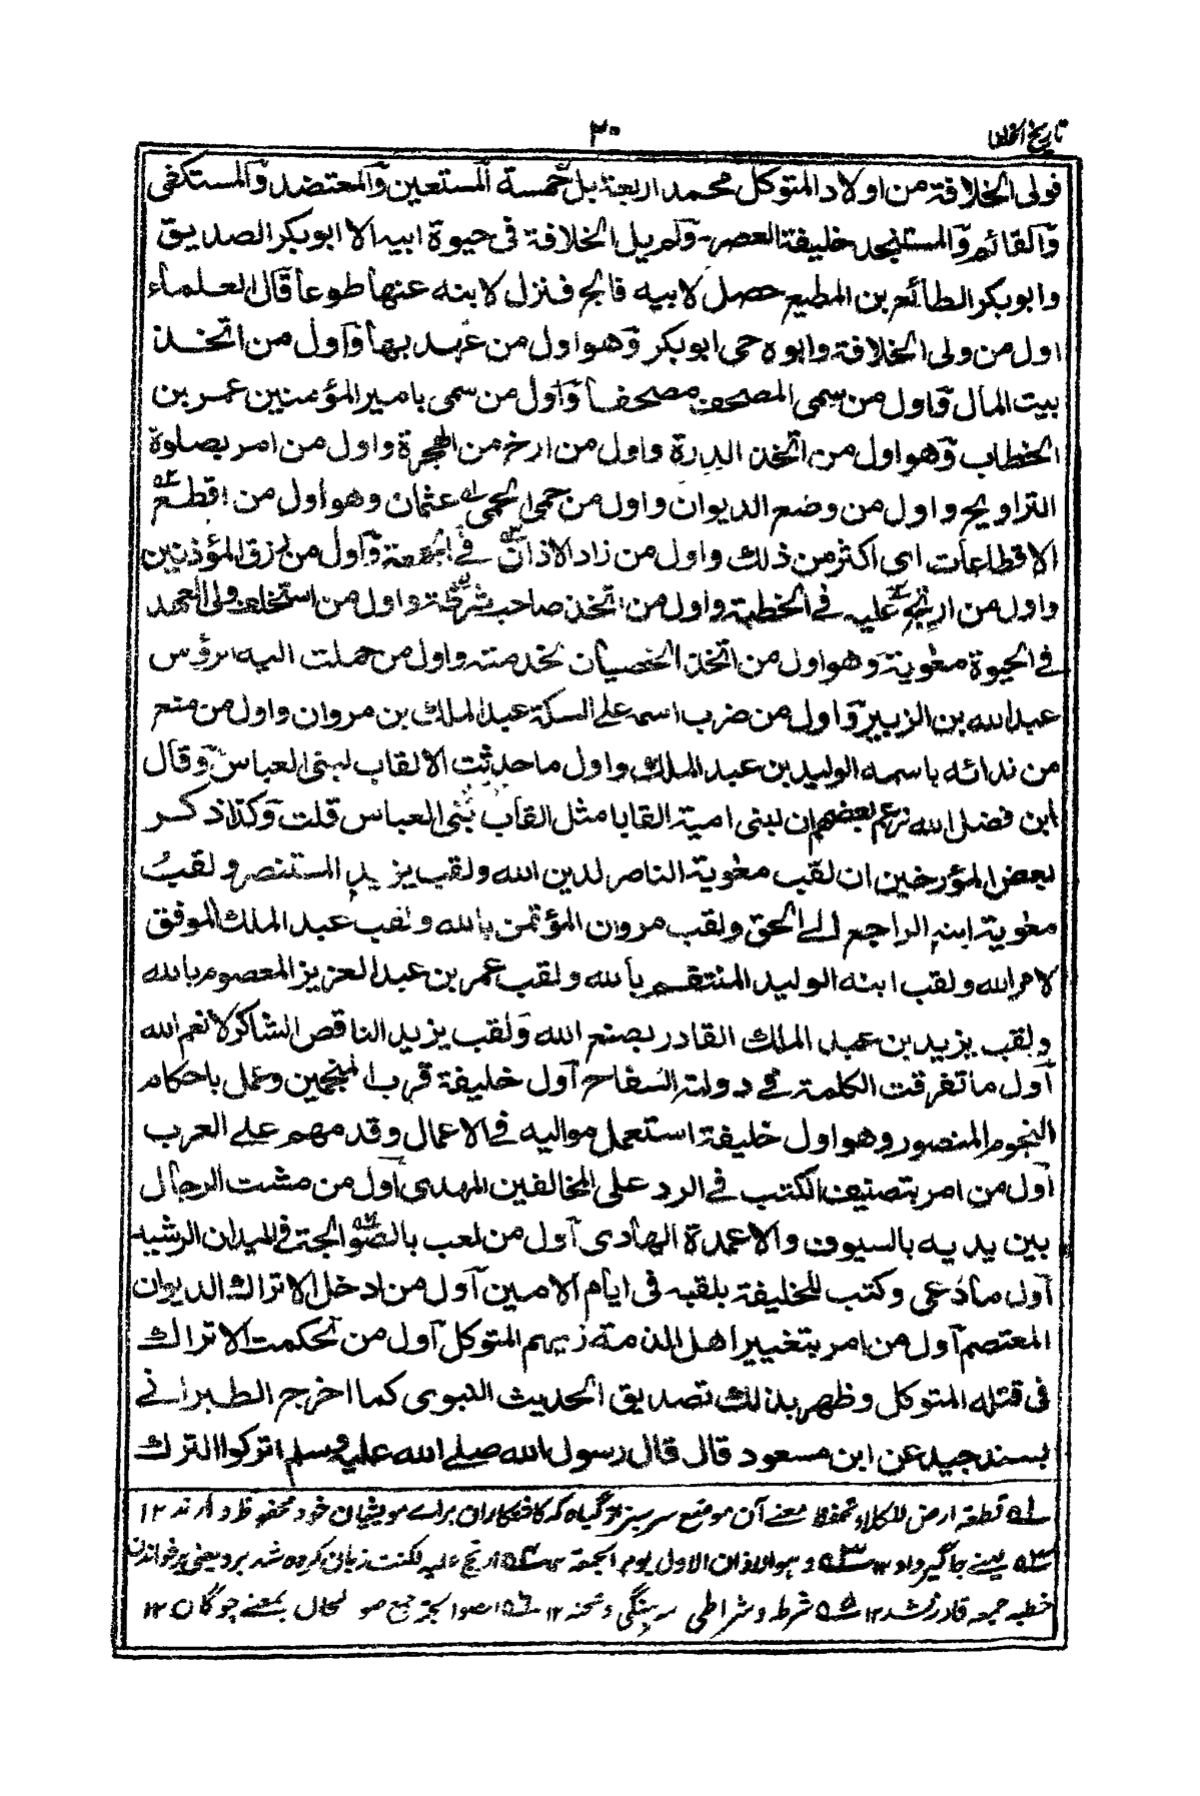 تاريخ الخلفا
٢٠
فولى الخلافة من اولاد المتوكل محمد اربعة بل خمسة المستعين والمعتضد والمستكفى
والقائم والمستنجد خليفة العصر ولم يل الخلافة فى حيوة ابيه الا ابوبكر الصديق
وابوبكر الطائع بن المطيع حصل لابيه فالج فنزل لابنه عنها طوعا قال العلماء
اول من ولى الخلافة وابوه حى ابوبكر وهو اول من عهد بها واول من اتخذ
بيت المال واول من سمى المصحف مصحفا واول من سمى بامير المؤمنين عمر بن
الخطاب وهو اول من اتخذ الدرة واول من ارخ من الهجرة واول من امر بصلوة
التراويح واول من وضع الديوان واول من حمى الحمى عثمان وهو اول من اقطع
الاقطاعات اى اكثر من ذلك واول من زاد الاذان فى الجمعة واول من رزق المؤذنين
واول من ارتج عليه فى الخطبة واول من اتخذ صاحب شرطة واول من استخلف ولى العهد
فى الحيوة معوية وهو اول من اتخذ الخصيان لخدمته واول من حملت اليه الرؤس
عبد الله بن الزبير واول من ضرب اسمه على السكة عبد الملك بن مروان واول من منع
من ندائه باسمه الوليد بن عبد الملك واول ما حدثت الالقاب لبنى العباس وقال
ابن فضل الله زعم بعضهم ان لبنى امية القابا مثل القاب بنى العباس قلت وكذا ذكر
بعض المؤرخين ان لقب معوية الناصر لدين الله ولقب يزيد المستنصر ولقب
معوية ابنه الراجع الى الحق ولقب مروان المؤتمن بالله ولقب عبد الملك الموفق
لامر الله ولقب ابنه الوليد المنتقم بالله ولقب عمر بن عبد العزيز المعصوم بالله
ولقب يزيد بن عبد الملك القادر بصنع الله ولقب يزيد الناقص الشاكر لانعم الله
اول ما تفرقت الكلمة فى دولة السفاح اول خليفة قرب المنجمين وعمل باحكام
النجوم المنصور وهو اول خليفة استعمل مواليه فى الاعمال وقدمهم على العرب
اول من امر بتصنيف الكتب فى الرد على المخالفين المهدى اول من مشت الرجال
بين يديه بالسيوف والاعمدة الهادى اول من لعب بالصوالجة فى الميدان الرشيد
اول ما دعى وكتب للخليفة بلقبه فى ايام الامين اول من ادخل الاتراك الديوان
المعتصم اول من امر بتغيير اهل الذمة زيهم المتوكل اول من تحكمت الاتراك
فى قتله المتوكل وظهر بذلك تصديق الحديث النبوى كما اخرج الطبرانى
بسند جيد عن ابن مسعود قال قال رسول الله صلى الله عليه وسلم اتركوا الترك
قطعة ارض للكلاء تحفظ يعنى آن موضع سرسبز گياه كه براے مويشيان خود محفوظ دارند ١٢
يعنى جاگير داد ١٢ وهو الاذان الاول يوم الجمعة ارتج عليه لكنت زبان كرده شد بر و يعنى بر خواندن
خطبه جمعه قادر نشد ١٢ شرطه و شراطى سرهنگى و شحنه ١٢ صوالجة جمع صولجان بمعنے چوگان ١٢